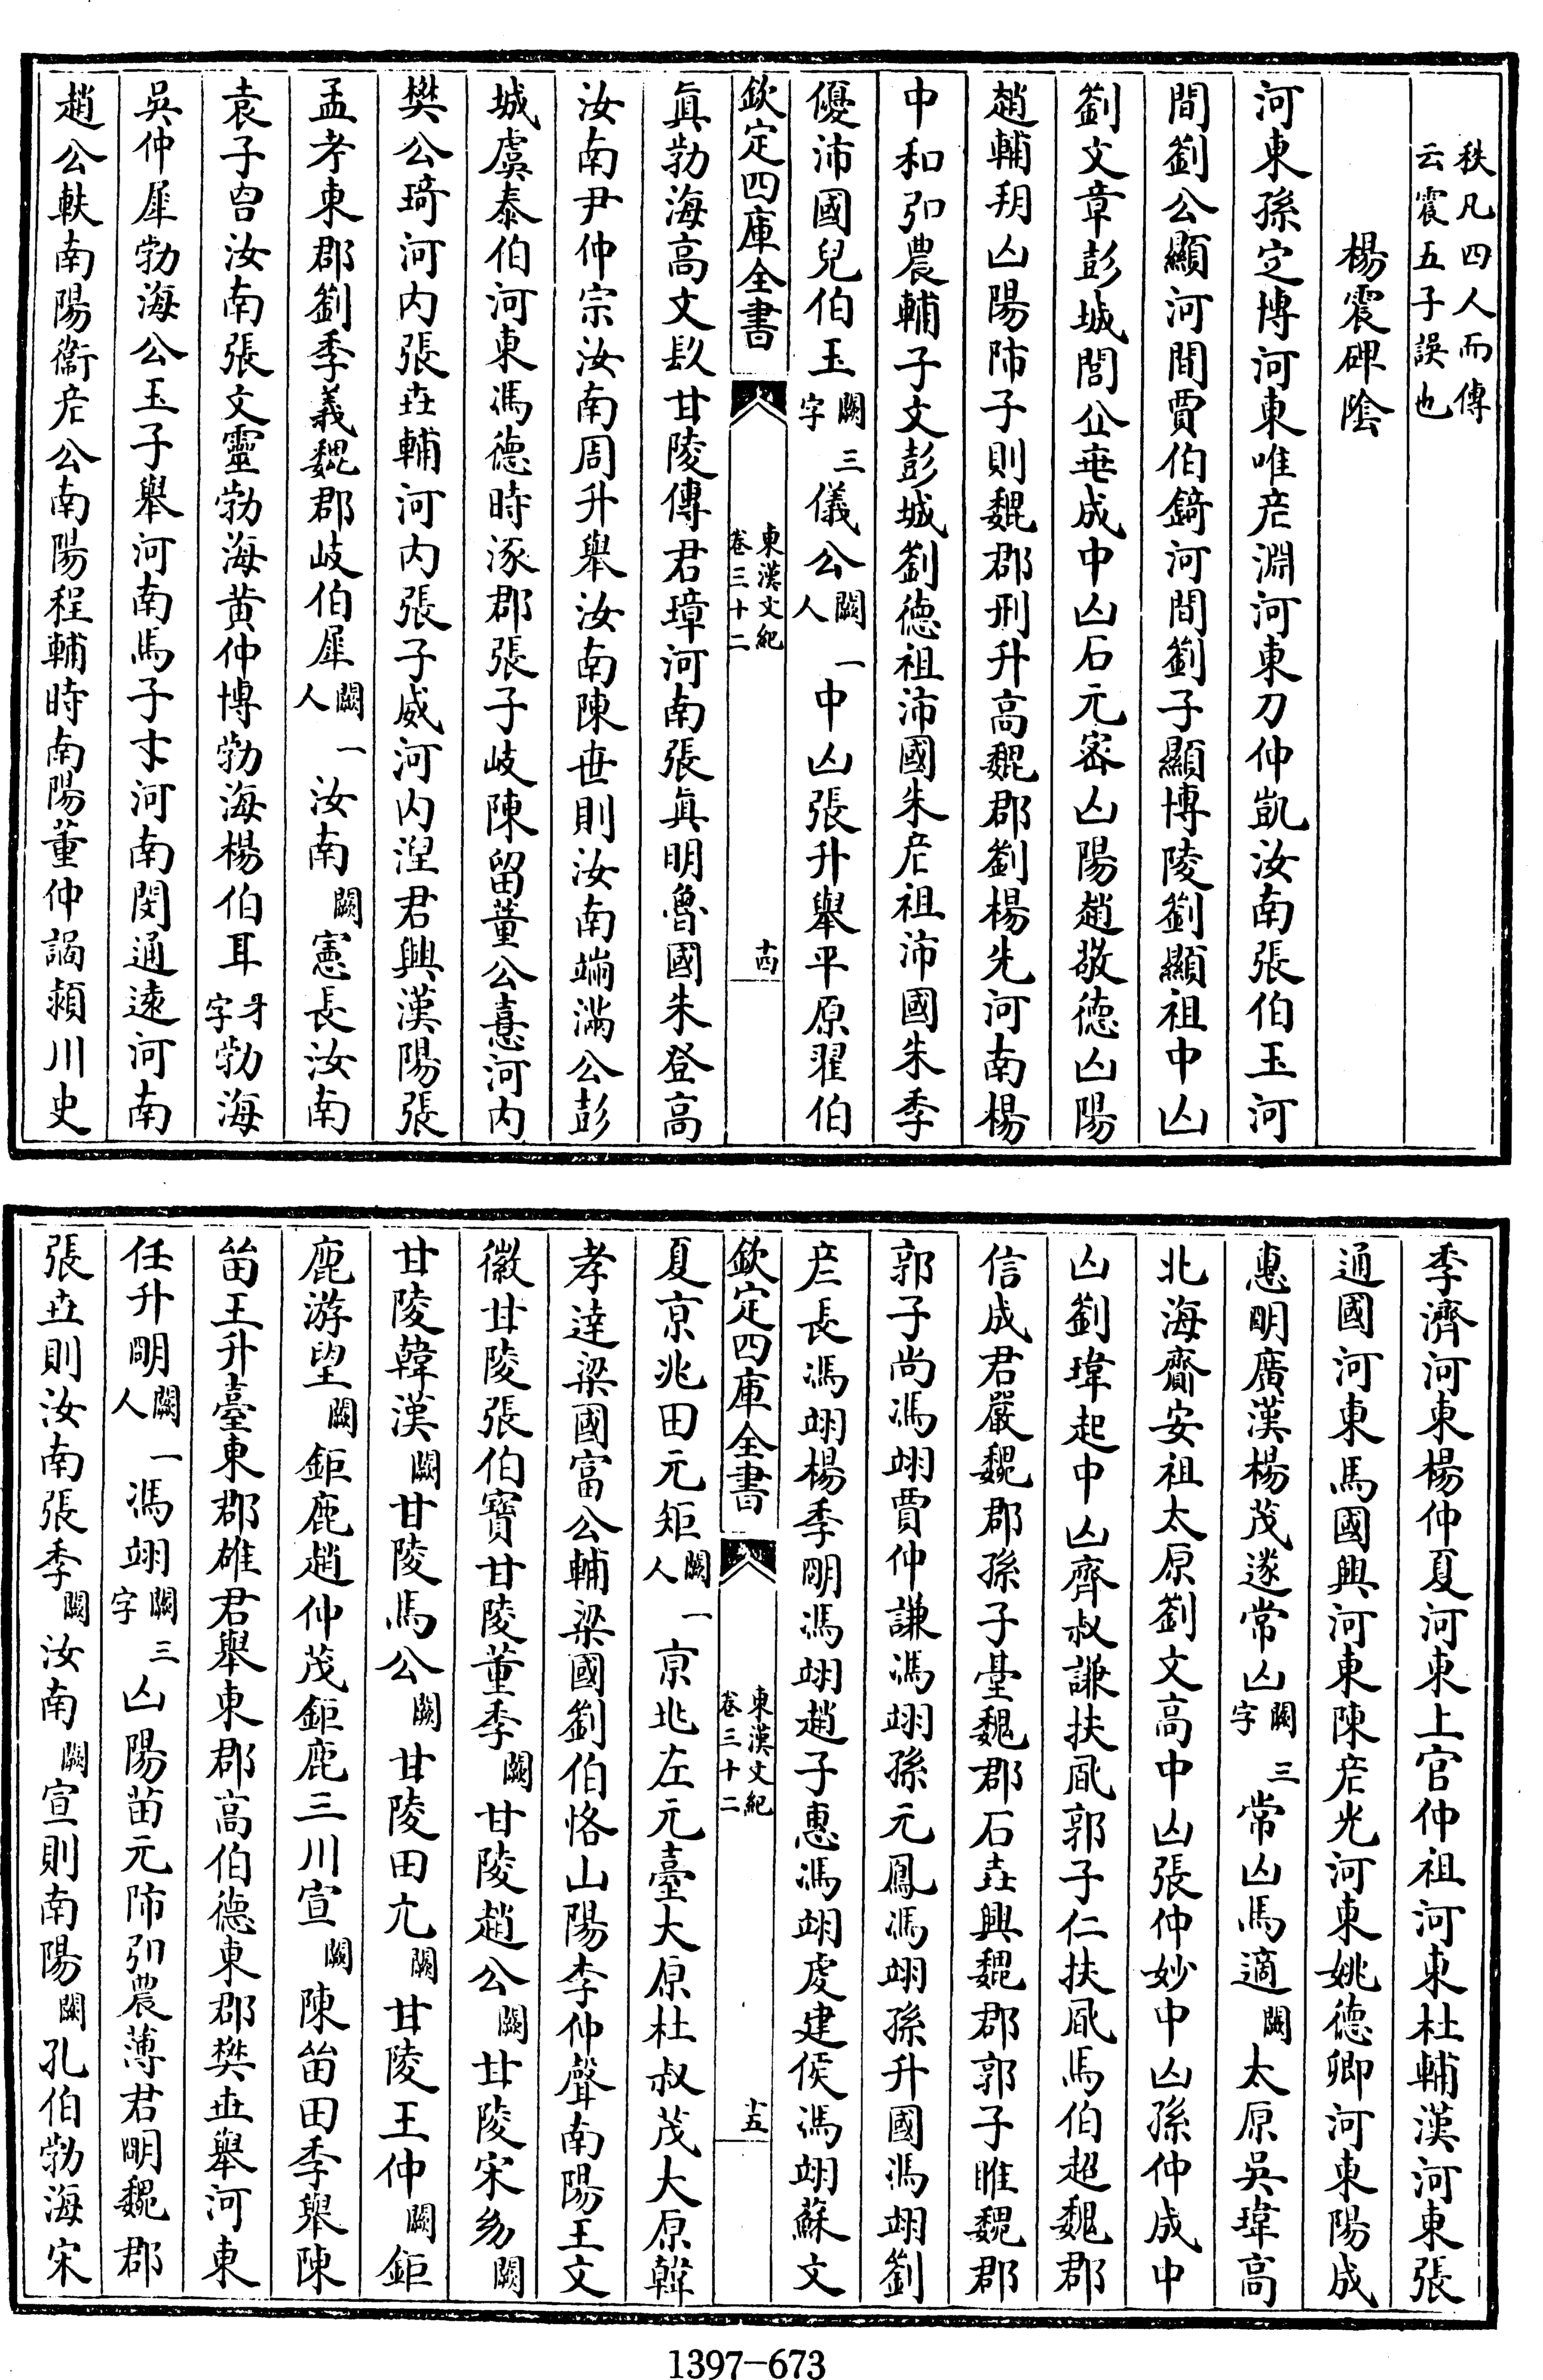 秩凡四人而傳
云震五子誤也
楊震碑陰
河東孫定博河東唯彦淵河東刀仲凱汝南張伯玉河
間劉公顯河間賈伯錡河間劉子顯博陵劉顯祖中山
劉文章彭城閭公垂成中山石元密山陽趙敬德山陽
趙輔朔山陽沛子則魏郡刑升高魏郡劉楊先河南楊
中和弘農輔子文彭城劉德祖沛國朱彦祖沛國朱季
優沛國兒伯玉闕三字儀公闕一人中山張升舉平原翟伯
欽定四庫全書
東漢文紀
卷三十二
十四
真勃海高文镹甘陵傅君璋河南張真明魯國朱登高
汝南尹仲宗汝南周升舉汝南陳世則汝南端滿公彭
城虞泰伯河東馮德時涿郡張子岐陳留董公憙河内
樊公琦河内張世輔河内張子威河内湼君興漢陽張
孟孝東郡劉季義魏郡岐伯犀闕一人汝南闕憲長汝南
袁子曾汝南張文靈勃海黄仲博勃海楊伯耳牙字勃海
吳仲犀勃海公玉子舉河南馬子才河南閔通遠河南
趙公軼南陽衞彦公南陽程輔時南陽董仲謁潁川史
季濟河東楊仲夏河東上官仲祖河東杜輔漢河東張
通國河東馬國興河東陳彦光河東姚德卿河東陽成
惠明廣漢楊茂遂常山闕三字常山馬適闕太原吳瑋高
北海齎安祖太原劉文高中山張仲妙中山孫仲成中
山劉瑋起中山齊叔謙扶風郭子仁扶風馬伯超魏郡
信成君嚴魏郡孫子臺魏郡石世興魏郡郭子睢魏郡
郭子尚馮翊賈仲謙馮翊孫元鳳馮翊孫升國馮翊劉
彦長馮翊楊季明馮翊趙子惠馮翊虔建侯馮翊蘇文
欽定四庫全書
東漢文紀
卷三十二
十五
夏京兆田元矩闕一人京兆左元臺大原杜叔茂大原韓
孝達梁國富公輔梁國劉伯恪山陽李仲聲南陽王文
徽甘陵張伯寳甘陵董季闕甘陵趙公闕甘陵宋幼闕
甘陵韓漢闕甘陵馬公闕甘陵田亢闕甘陵王仲闕鉅
鹿游望闕鉅鹿趙仲茂鉅鹿三川宣闕陳畱田季舉陳
畱王升臺東郡雄君舉東郡高伯德東郡樊世舉河東
任升明闕一人馮翊闕三字山陽苗元沛弘農薄君明魏郡
張世則汝南張季闕汝南闕宣則南陽闕孔伯勃海宋
1397-673